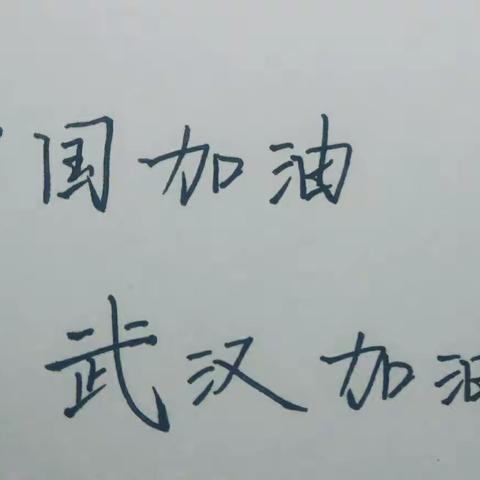 国加油
武汉加油